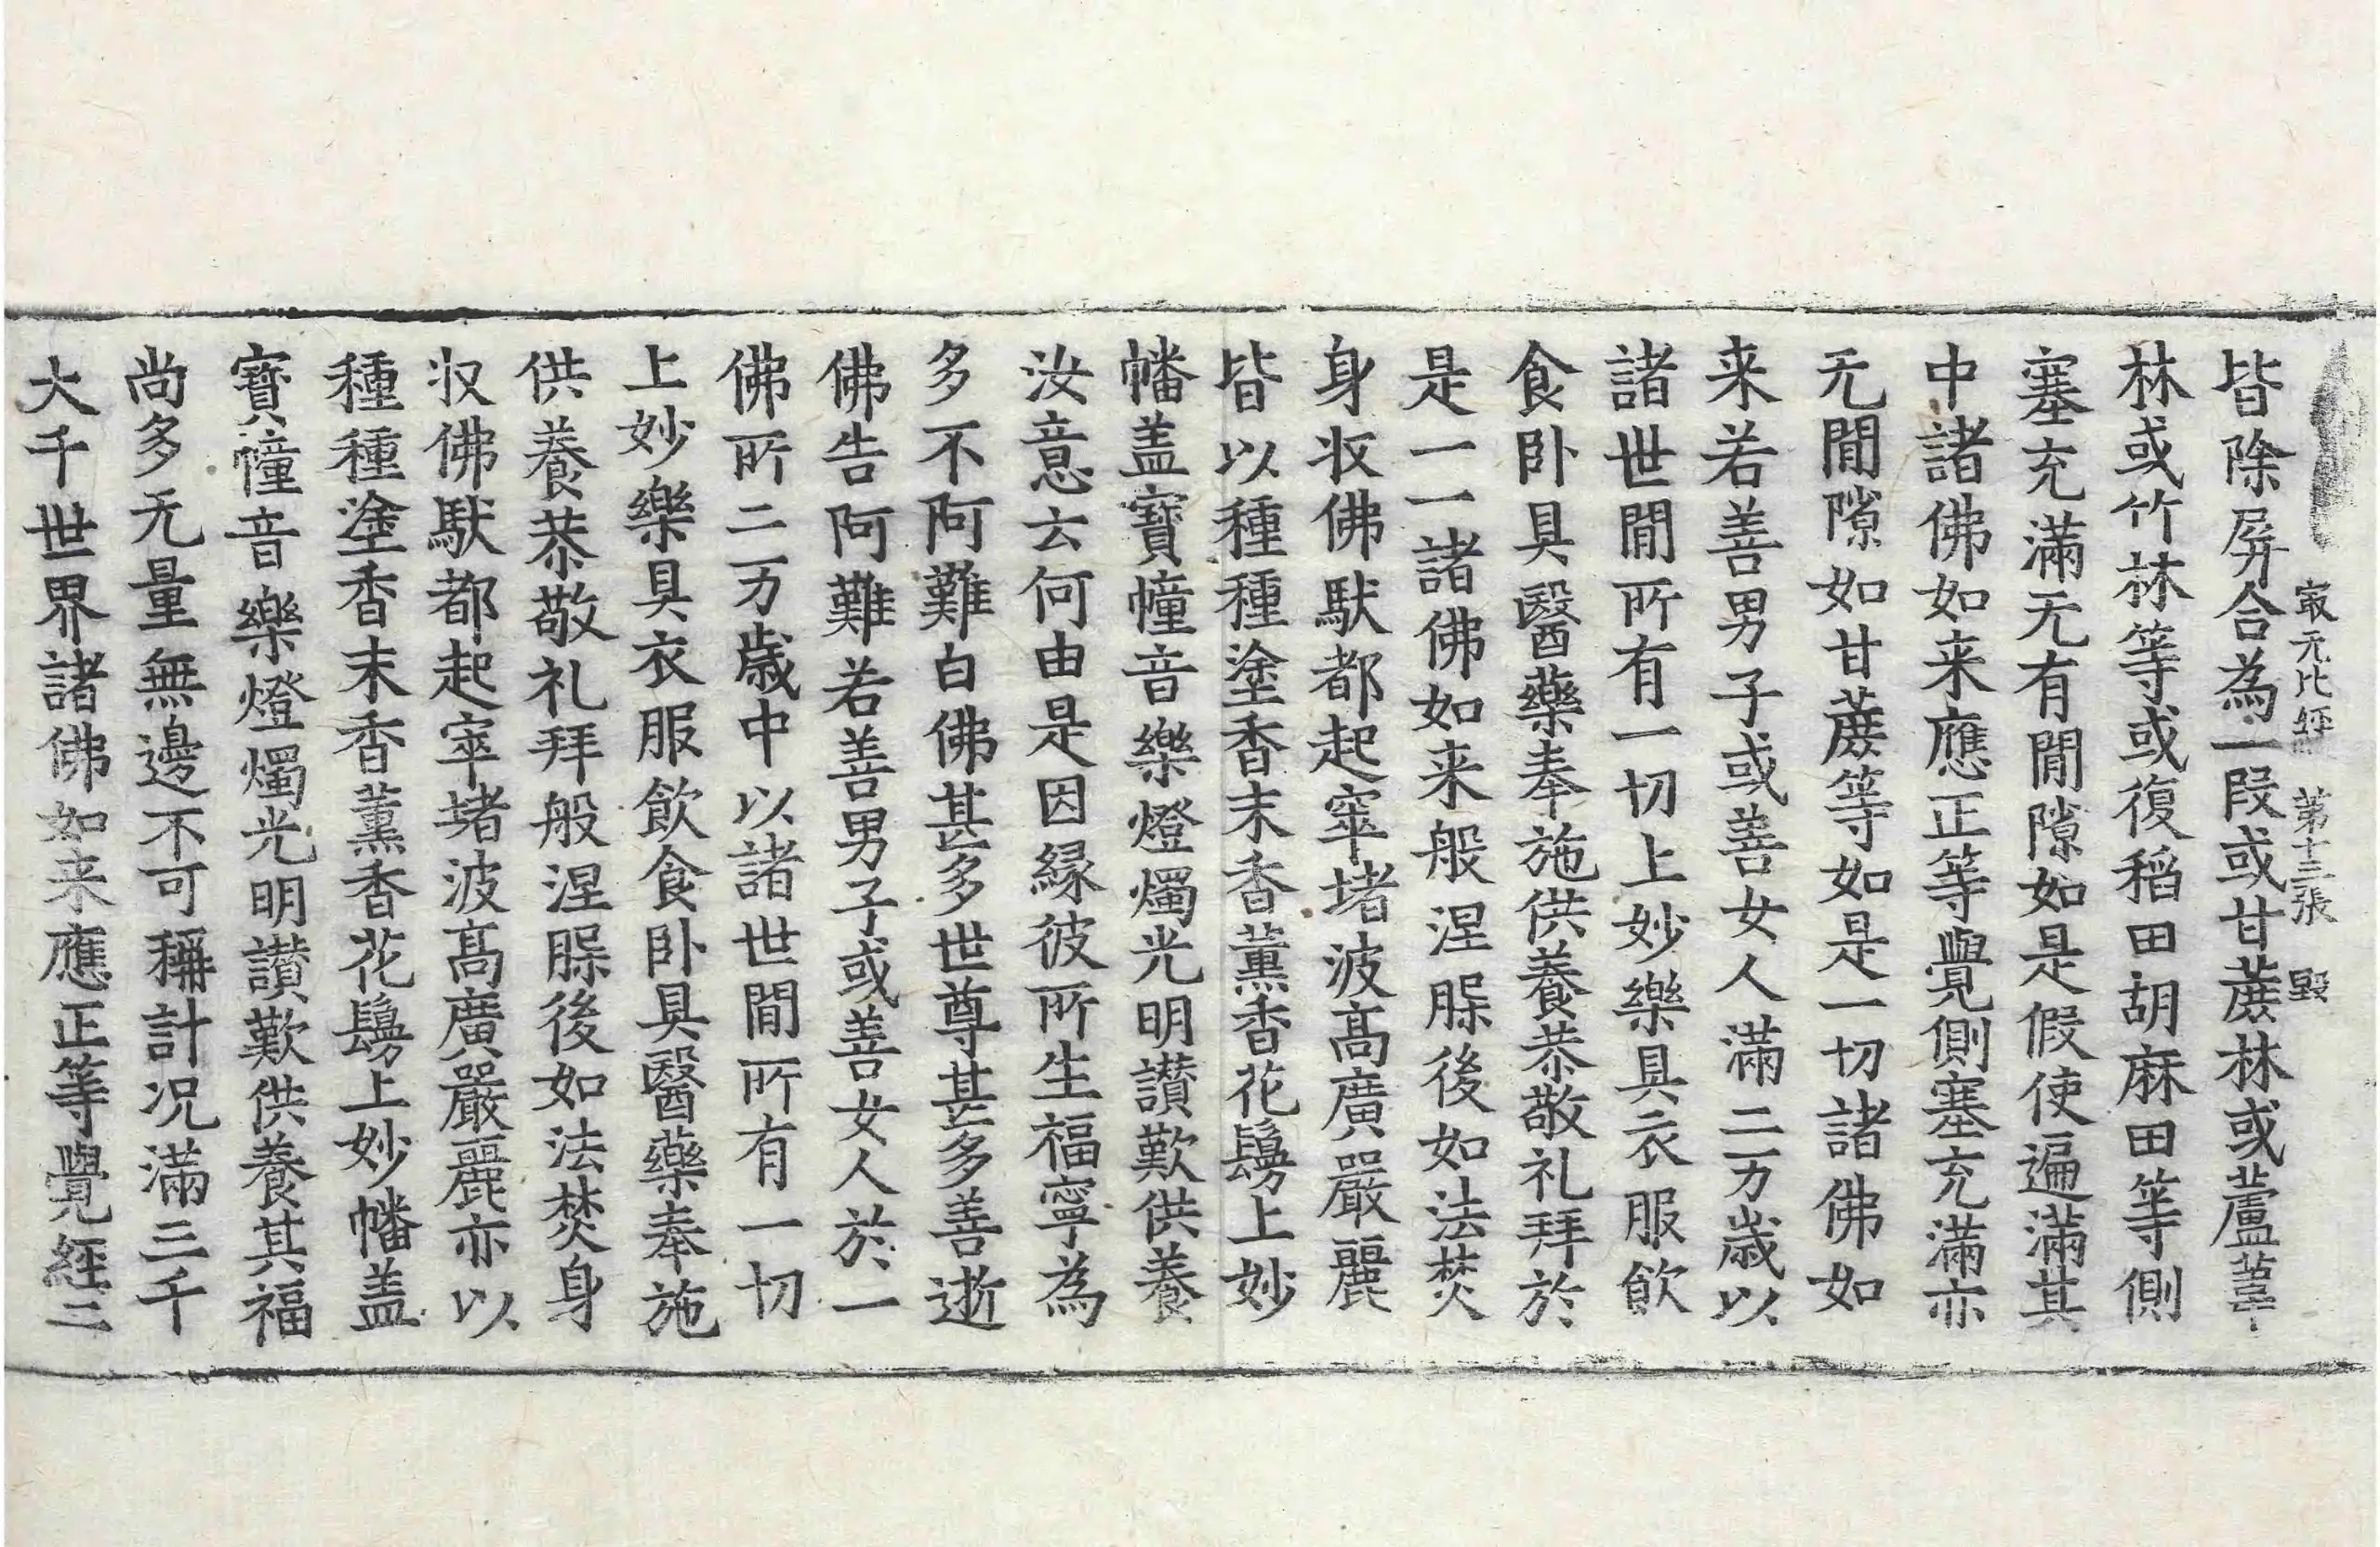 冣无比經 第十三張 毀
皆除屛合為一段或甘蔗林或蘆葦
林或竹林等或復稻田胡麻田等側
塞充滿无有閒隙如是假使遍滿其
中諸佛如来應正等覺側塞充滿亦
无閒隙如甘蔗等如是一切諸佛如
来若善男子或善女人滿二万歲以
諸世閒所有一切上妙樂具衣服飮
食卧具醫藥奉施供養恭敬礼拜於
是一一諸佛如来般涅腂後如法焚
身收佛馱都起窣堵波高廣嚴麗
皆以種種塗香末香薰香花鬘上妙
幡盖寶幢音樂燈燭光明讃歎供養
汝意云何由是因緣彼所生福寧為
多不阿難白佛甚多世尊甚多善逝
佛告阿難若善男子或善女人於一
佛所二万歲中以諸世閒所有一切
上妙樂具衣服飮食卧具醫藥奉施
供養恭敬礼拜般涅腂後如法焚身
收佛馱都起窣堵波高廣嚴麗亦以
種種塗香末香薰香花鬘上妙幡盖
寶幢音樂燈燭光明讃歎供養其福
尚多无量無邊不可稱計况滿三千
大千世界諸佛如来應正等覺經二